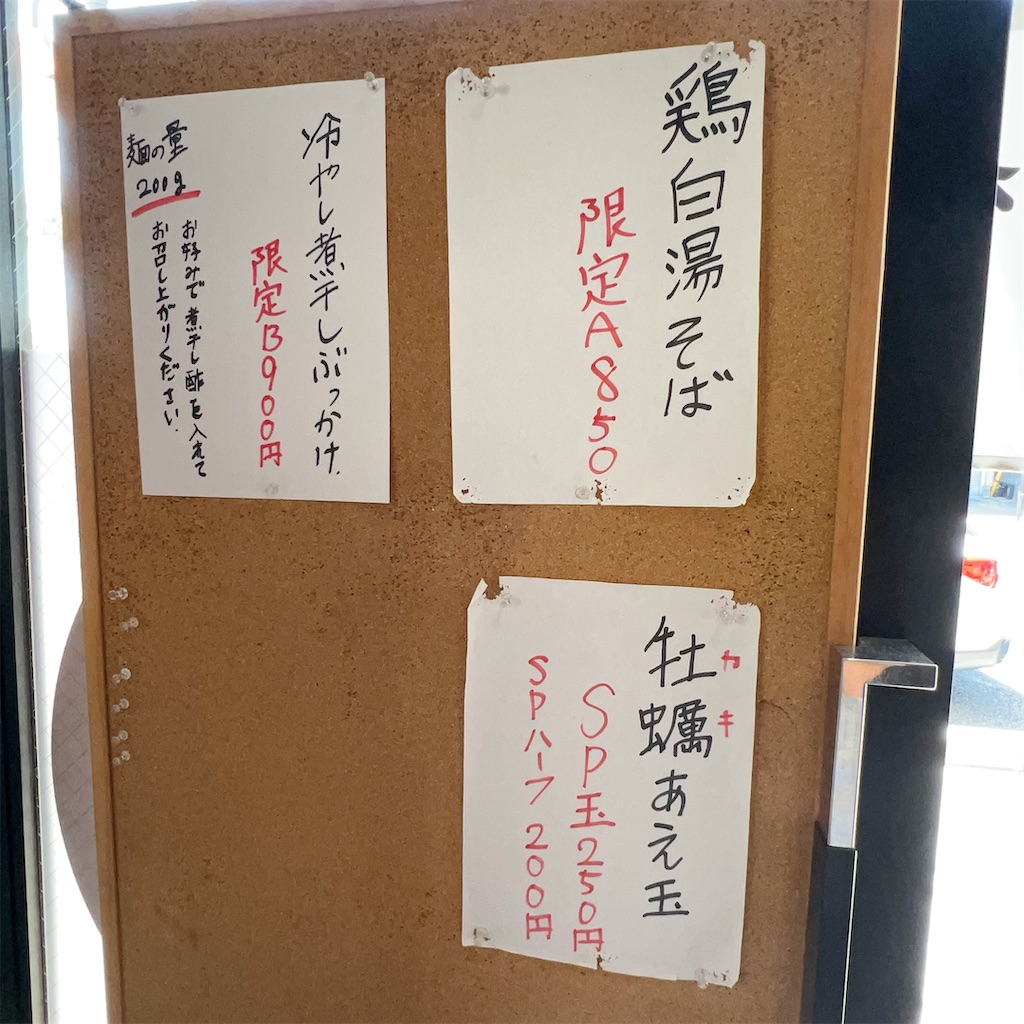 鶏白湯そば
限定A850
冷やし煮干しぶっかけ.
限定B900円
お好みで煮干し酢を入れて
お召し上がりください.
麺の量
200g
牡蠣あえ玉
カキ
SP玉250円
SPハーフ200円